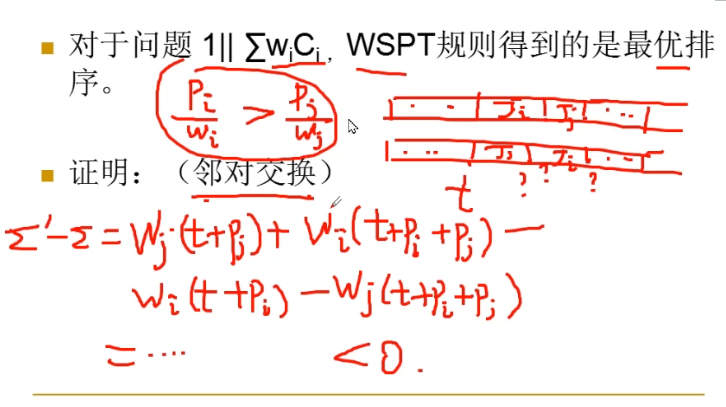 对于问题 1|| ∑wiCi, WSPT规则得到的是最优排
序。
Pi/wi > Pj/wj
· · Ji Jj · ·
· · Jj Ji · ·
证明：（邻对交换）
t ? ? ?
Σ'-Σ = Wj·(t+Pj) + Wi(t+Pi+Pj) —
Wi(t+Pi) - Wj(t+Pi+Pj)
= ···· <0.